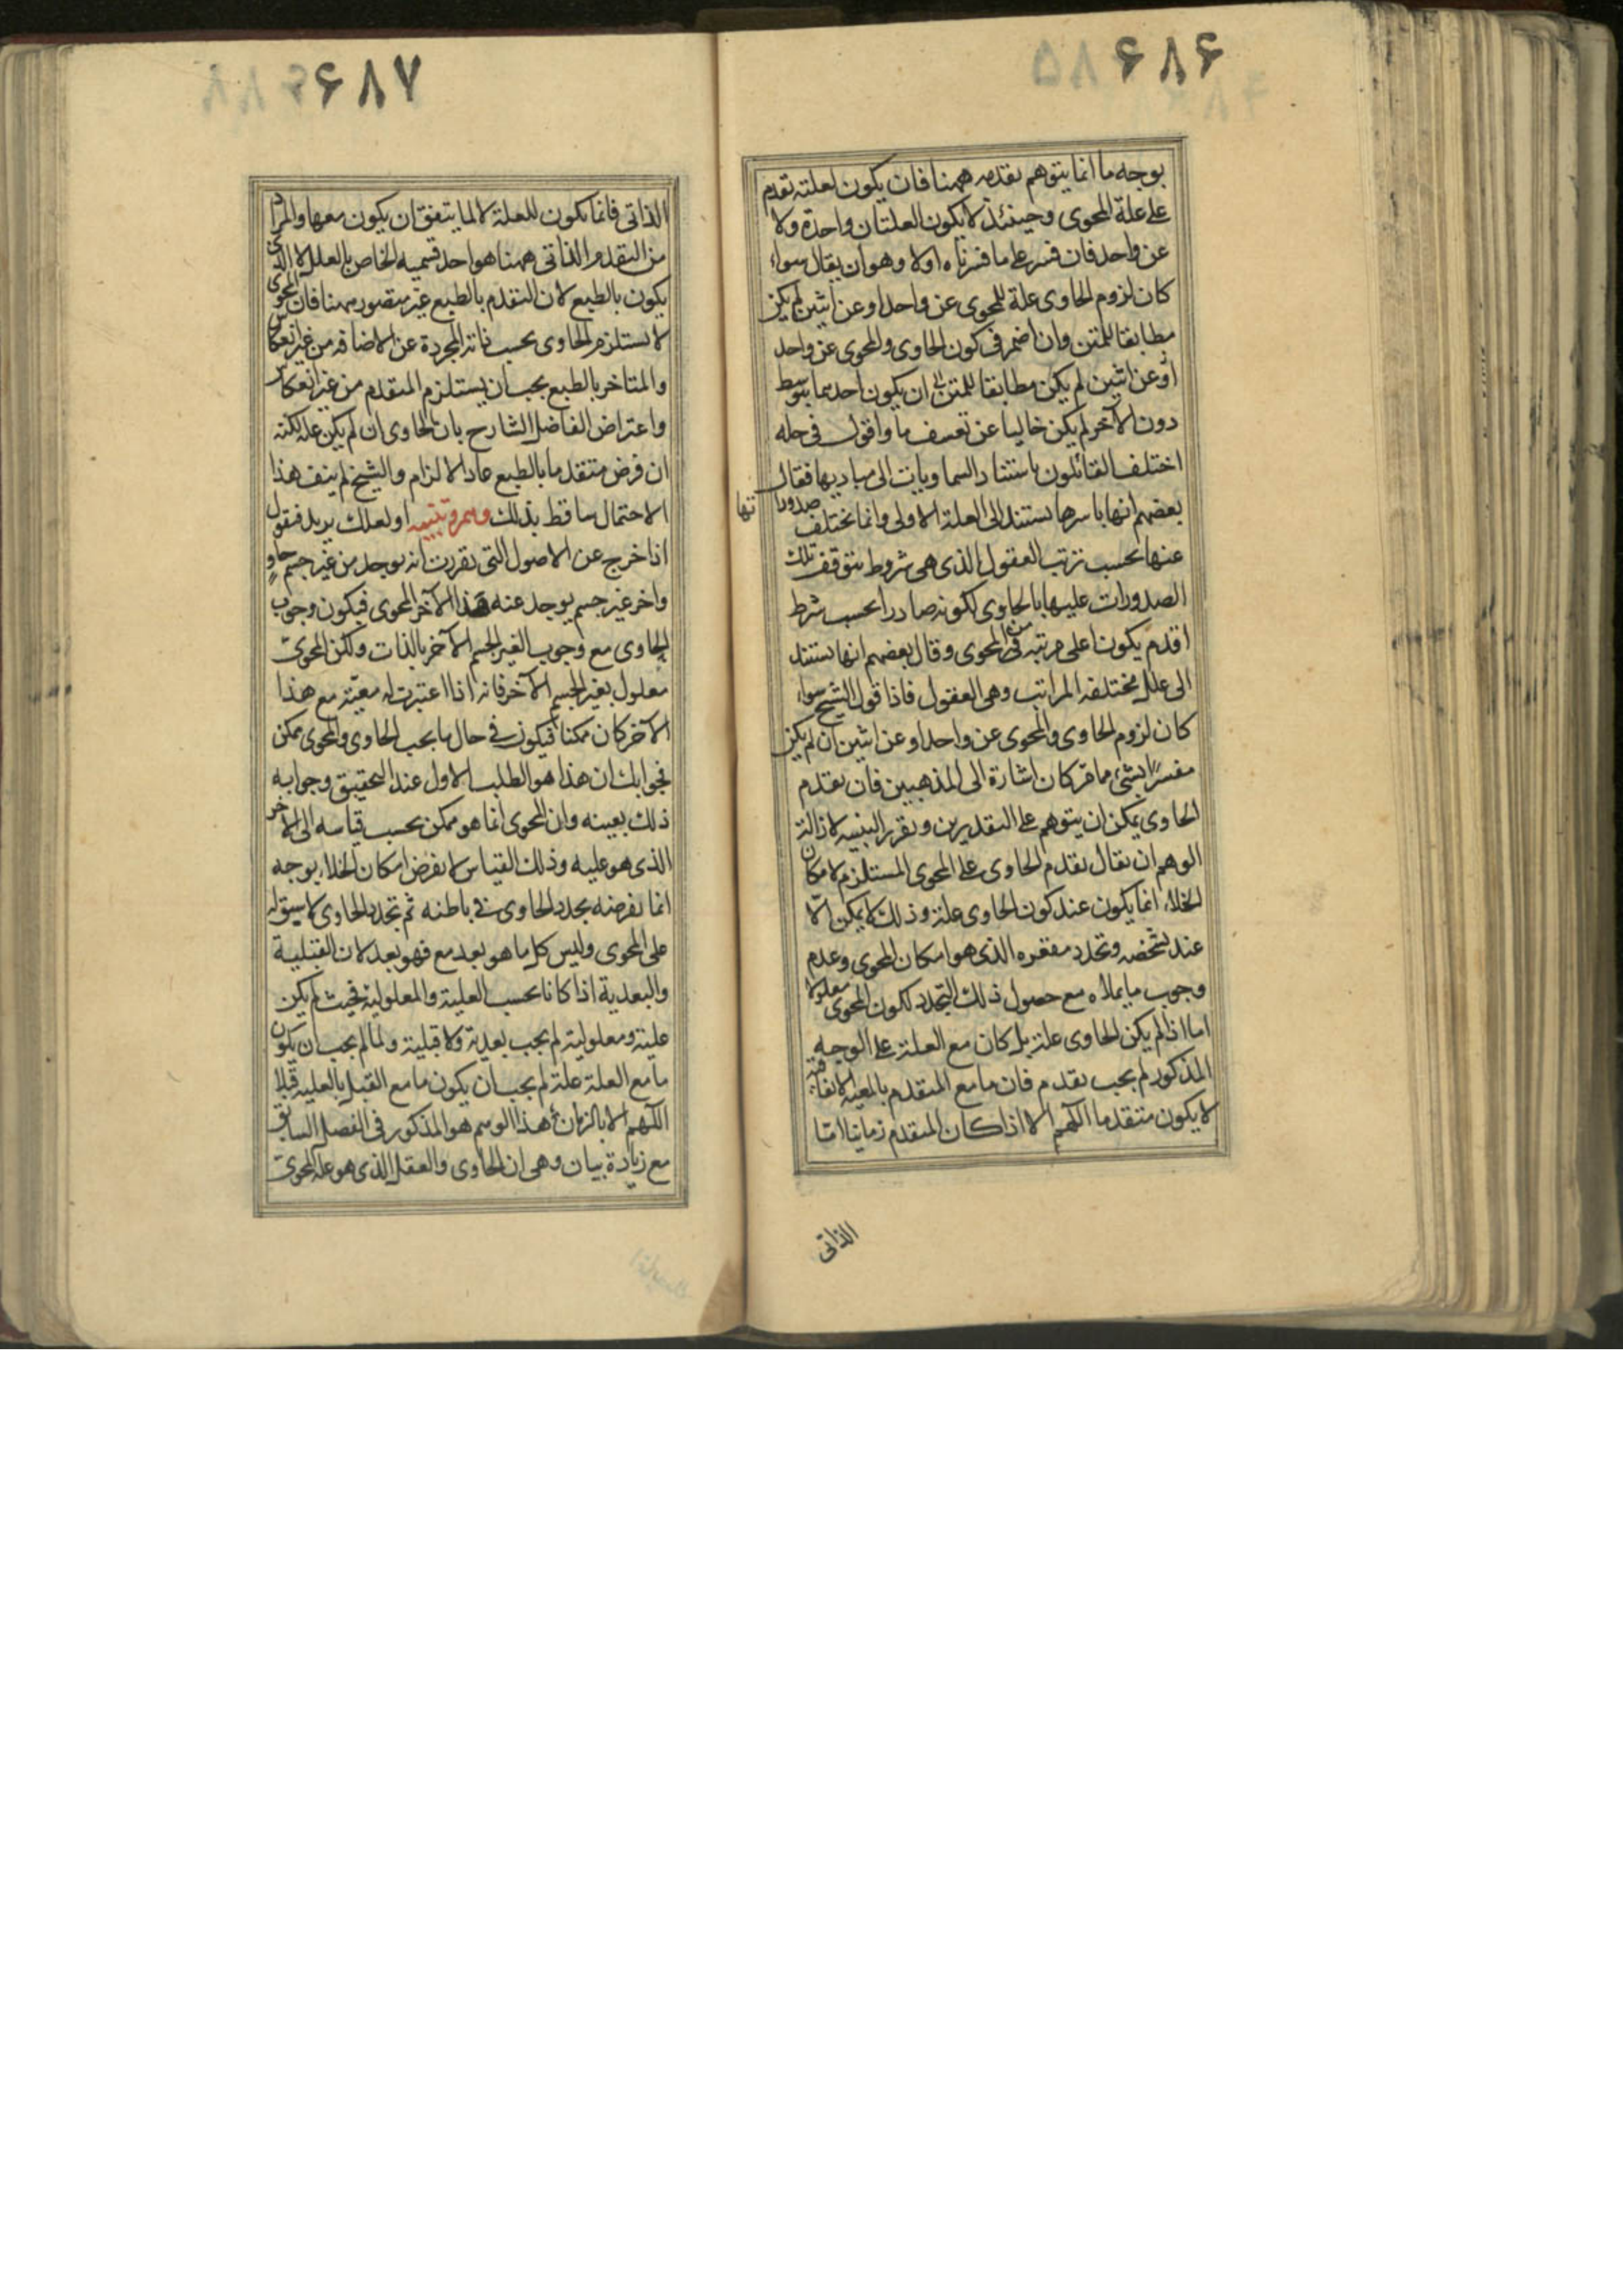 ۶۸۶
بوجه ما انما يتوهم تقدمه ههنا فان يكون لعلته تقدم
على علة المحوى وحينئذ لا يكون العلتان واحدة ولا
عن واحد فان فسر على ما فسرناه اولا وهو ان يقال سواء
كان لزوم الحاوى علة للمحوى عن واحد او عن اثنين لم يكن
مطابقا للمتن وان اضمر فى كون الحاوى والمحوى عن واحد
او عن اثنين لم يكن مطابقا للمتن ان يكون احدهما بتوسط
دون الآخر لم يكن خاليا عن تعسف ما واقول فى حله
اختلف القائلون باستناد السماويات الى مباديها فقال
بعضهم انها باسرها تستند الى العلة الاولى وانما تختلف صدوراتها
عنها بحسب ترتب العقول الذى هى شروط تتوقف تلك
الصدورات عليها بالحاوى لكونه صادرا بحسب شرط
اقدم يكون اعلى مرتبه من المحوى وقال بعضهم انها تستند
الى علل مختلفه المراتب وهى العقول فاذا قول الشيخ سواء
كان لزوم الحاوى والمحوى عن واحد او عن اثنين ان لم يكن
مفسرا بشئ مما مر كان اشارة الى المذهبين فان تقدم
الحاوى يمكن ان يتوهم على التقديرين وتقرير التنبيه لازالة
الوهم ان يقال تقدم الحاوى على المحوى المستلزم لامكان
الخلاء انما يكون عند كون الحاوى علة وذلك لا يمكن الا
عند تشخصه وتحدد مقعره الذى هو امكان المحوى وعدم
وجوب ما يملاه مع حصول ذلك التحدد لكون المحوى معلولا
اما اذا لم يكن الحاوى علة بل كان مع العلة على الوجه
المذكور لم يجب تقدم فان ما مع المتقدم بالمعية الاتفاقية
لا يكون متقدما اللهم الا اذا كان المتقدم زمانيا اما
الذاتى
۶۸۷
الذاتى فانما يكون للعلة لا لما يتفق ان يكون معها والمراد
من التقدم الذاتى ههنا هو احد قسميه الخاص بالعلل لا الذى
يكون بالطبع لان التقدم بالطبع غير متصور ههنا فان المحوى
لا يستلزم الحاوى بحسب ذاته المجردة عن الاضافه من غير انعكاس
والمتاخر بالطبع يجب ان يستلزم المتقدم من غير انعكاس
واعتراض الفاضل الشارح بان الحاوى ان لم يكن علة لكنه
ان فرض متقدما بالطبع عاد الالزام والشيخ لم ينف هذا
الاحتمال ساقط بذلك وهم وتنبيه او لعلك يريد فتقول
اذا خرج عن الاصول التى تقررت انه يوجد من غير جسم حاو
واخر غير جسم يوجد عنه هذا الآخر المحوى فيكون وجوب
الحاوى مع وجوب الغير الجسم الآخر بالذات ولكن المحوى
معلول بغير الجسم الآخر فانه اذا اعتبرت له معية مع هذا
الآخر كان ممكنا فيكون فى حال ما يجب الحاوى والمحوى ممكن
فجوابك ان هذا هو الطلب الاول عند التحقيق وجوابه
ذلك بعينه وان المحوى انما هو ممكن بحسب قياسه الى الآخر
الذى هو عليه وذلك القياس لا يفرض امكان الخلاء بوجه
انما يفرضه تحدد الحاوى فى باطنه ثم تحدد الحاوى لا سبق له
على المحوى وليس كل ما هو بعد مع فهو بعد لان القبلية
والبعدية اذا كانا بحسب العلية والمعلولية فحيث لم يكن
علية ومعلولية لم يجب بعدية ولا قبلية ولما لم يجب ان يكون
ما مع العلة علة لم يجب ان يكون ما مع القبل بالعليه قبلا
اللهم الا بالزمان هذا الوهم هو المذكور فى الفصل السابق
مع زيادة بيان وهى ان الحاوى والعقل الذى هو علة المحوى